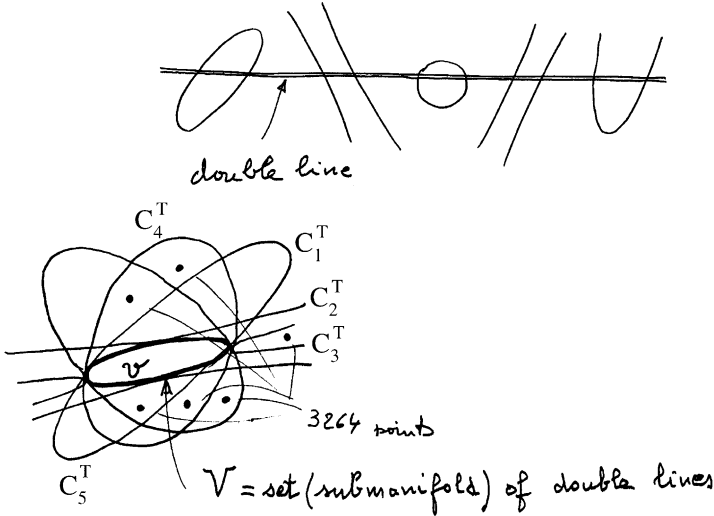 double line
C_4^T
C_1^T
C_2^T
C_3^T
v
3264 points
C_5^T
V = set (submanifold) of double lines